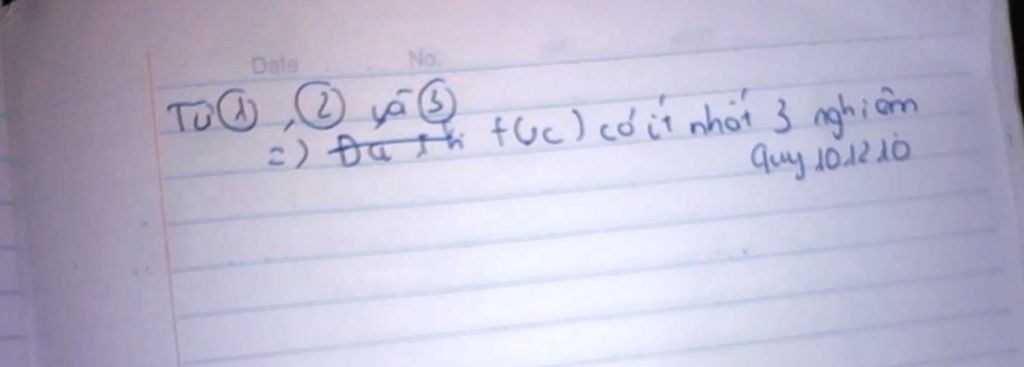 Date No.
Từ ①, ② và ③
=) f(x) có ít nhất 3 nghiệm
Quy 10.12.10